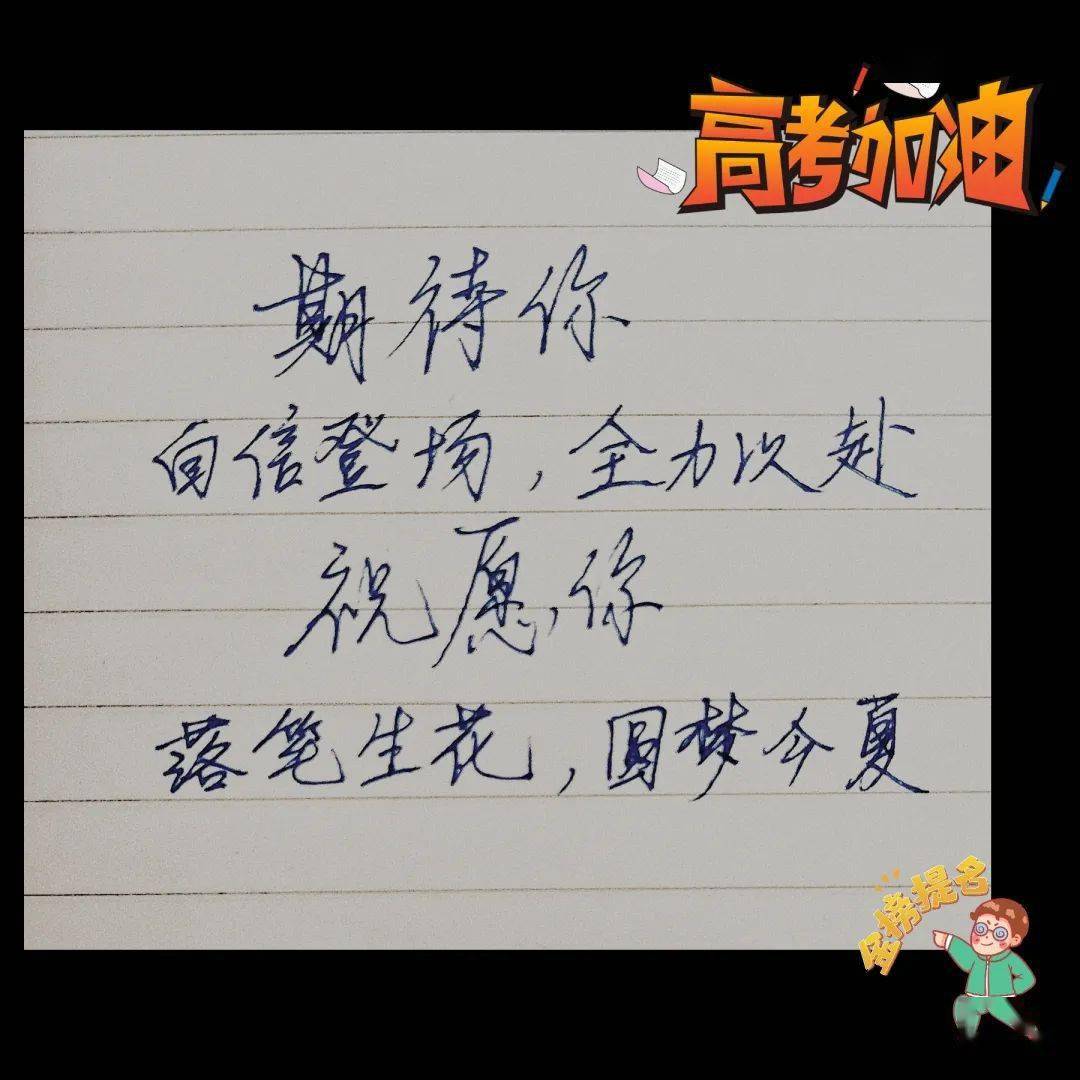 高考加油
期待你
自信登场，全力以赴
祝愿你
落笔生花，圆梦今夏
金榜提名